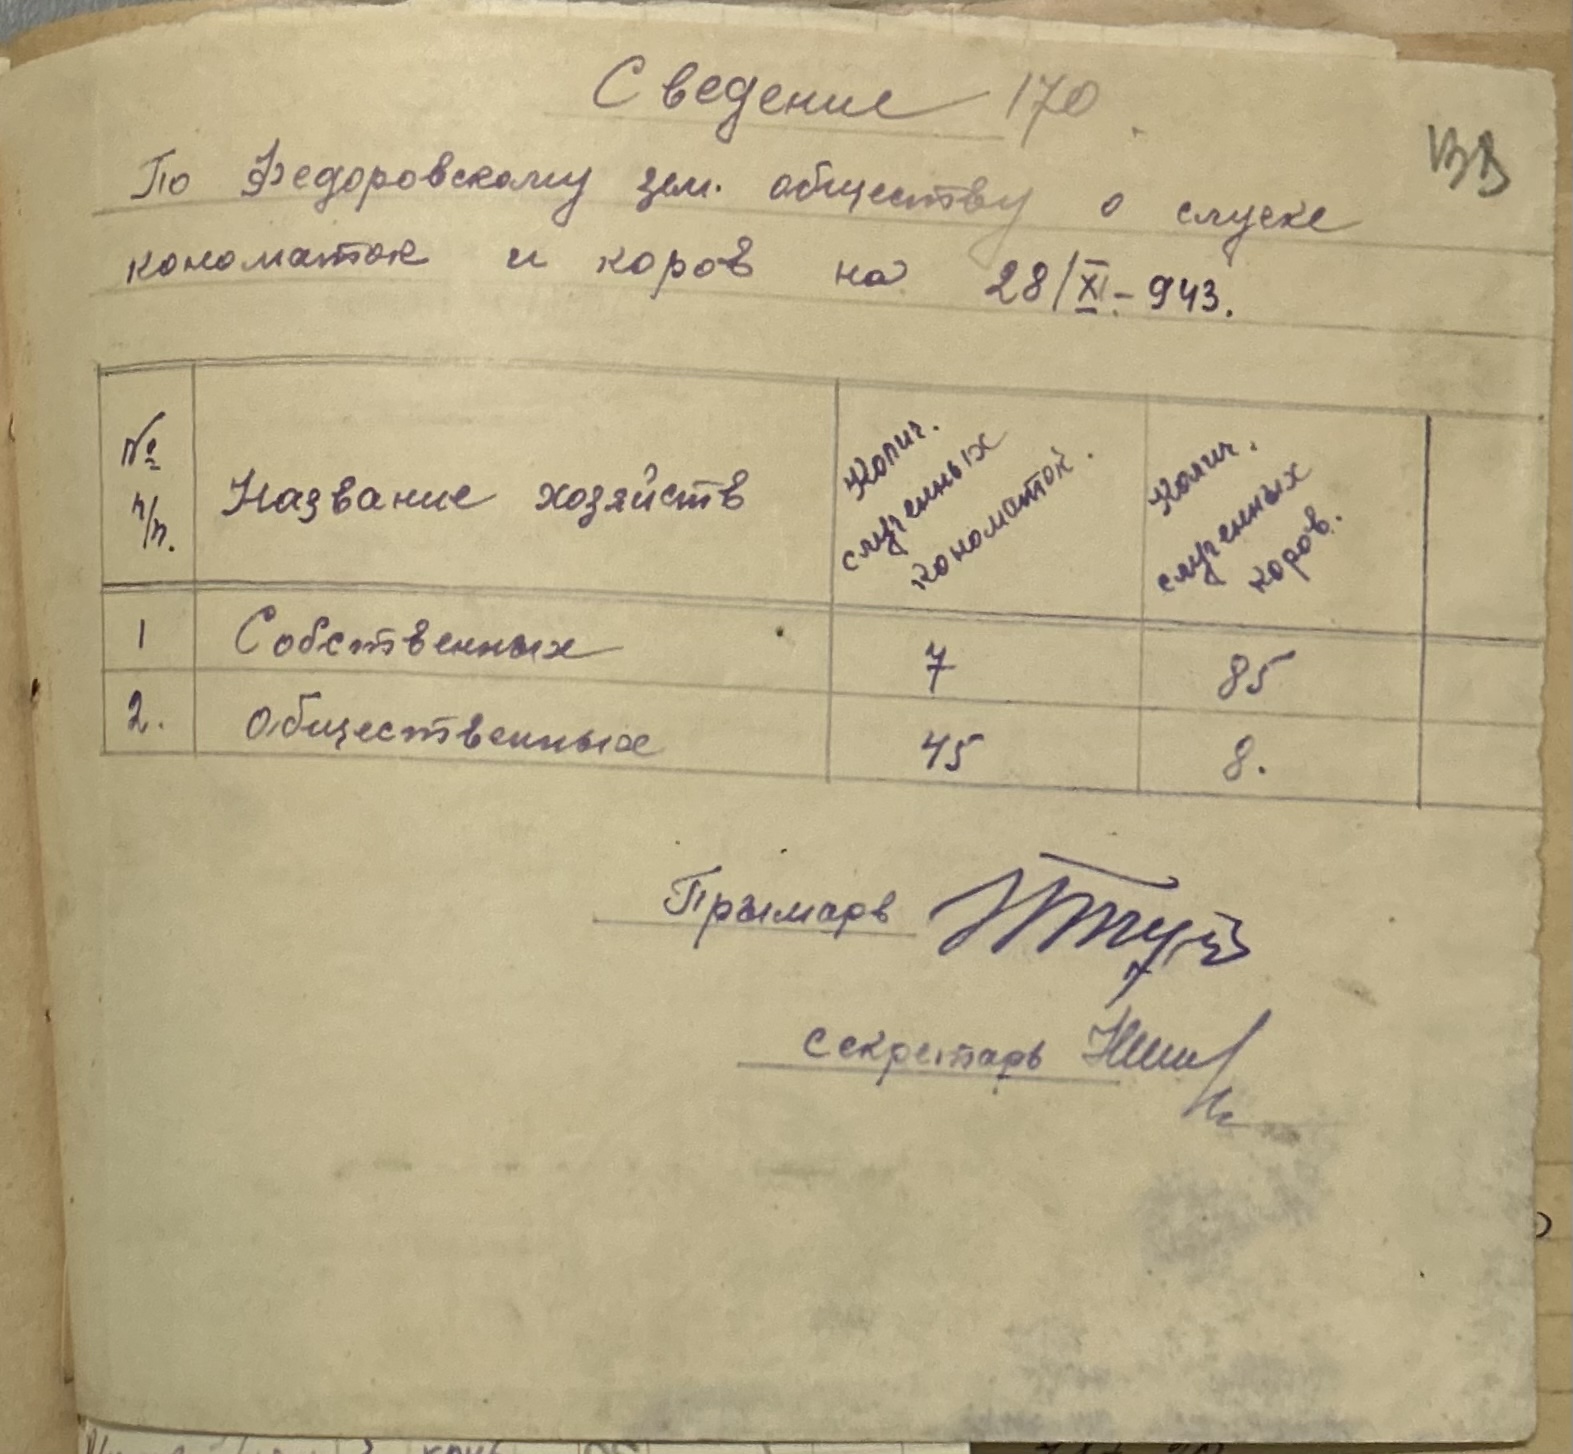 Сведение 170
По Федоровскому зем. обществу о случке
кономаток и коров на 28/XI-943.
№ п/п.
Название хозяйств
Колич. слученных кономаток.
Колич. слученных коров.
1 Собственных 7 85
2. Общественных 45 8.
Прымарь
Секретарь